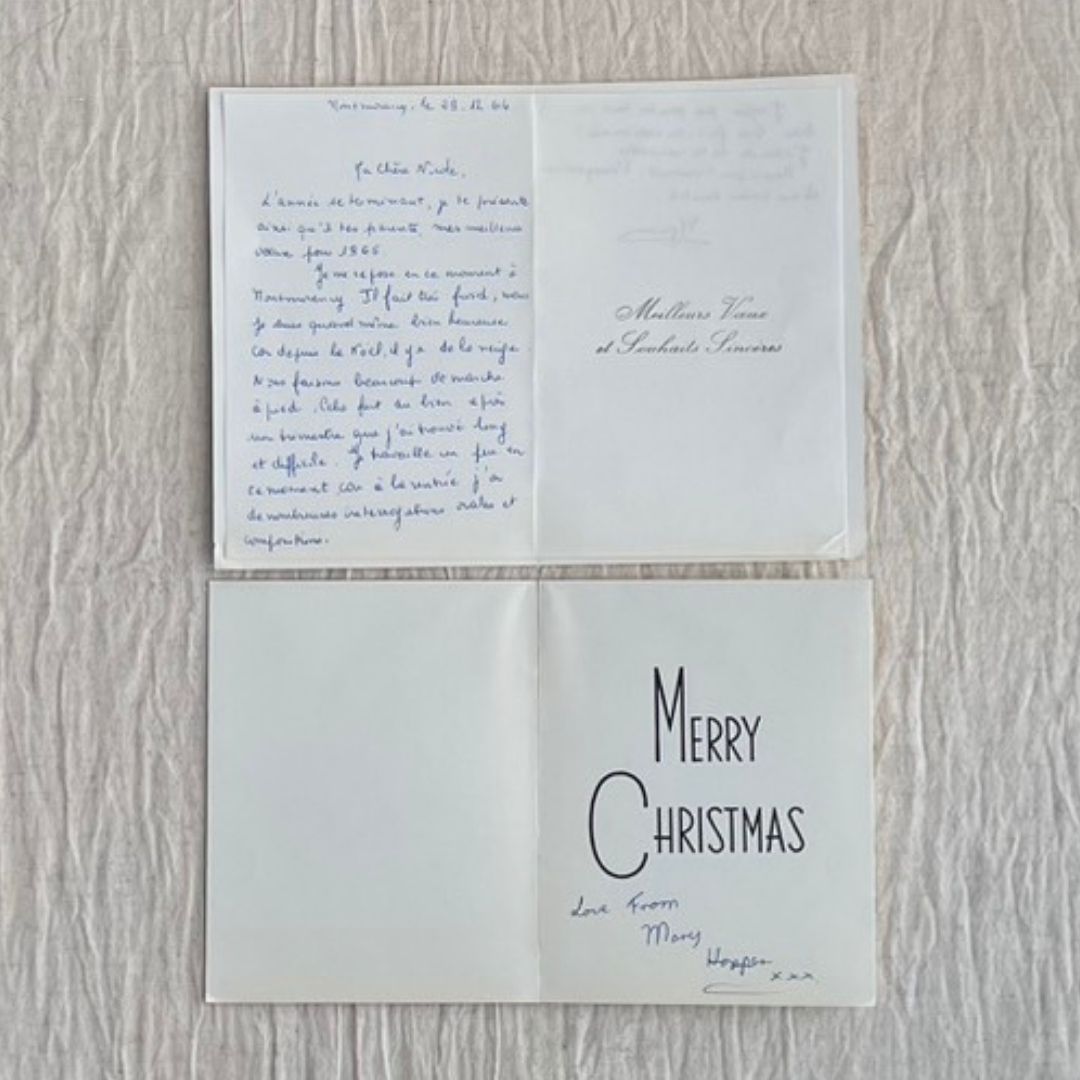 Montmorency, le 29.12.64
Ma Chère Nicole,
L'année se terminant, je te présente
ainsi qu'à tes parents, mes meilleurs
vœux pour 1965
Je me repose en ce moment à
Montmorency Il fait très froid, mais
Je suis quand même bien heureuse
Car depuis le Noël, il y a de la neige
Nous faisons beaucoup de marche
à pied. Cela fait du bien après
un trimestre que j'ai trouvé long
et difficile. Je travaille un peu en
ce moment car à la rentrée j'ai
de nombreuses interrogations orales et
compositions.
Meilleurs Vœux
et Souhaits Sincères
MERRY
CHRISTMAS
Love From
Mary
xxx